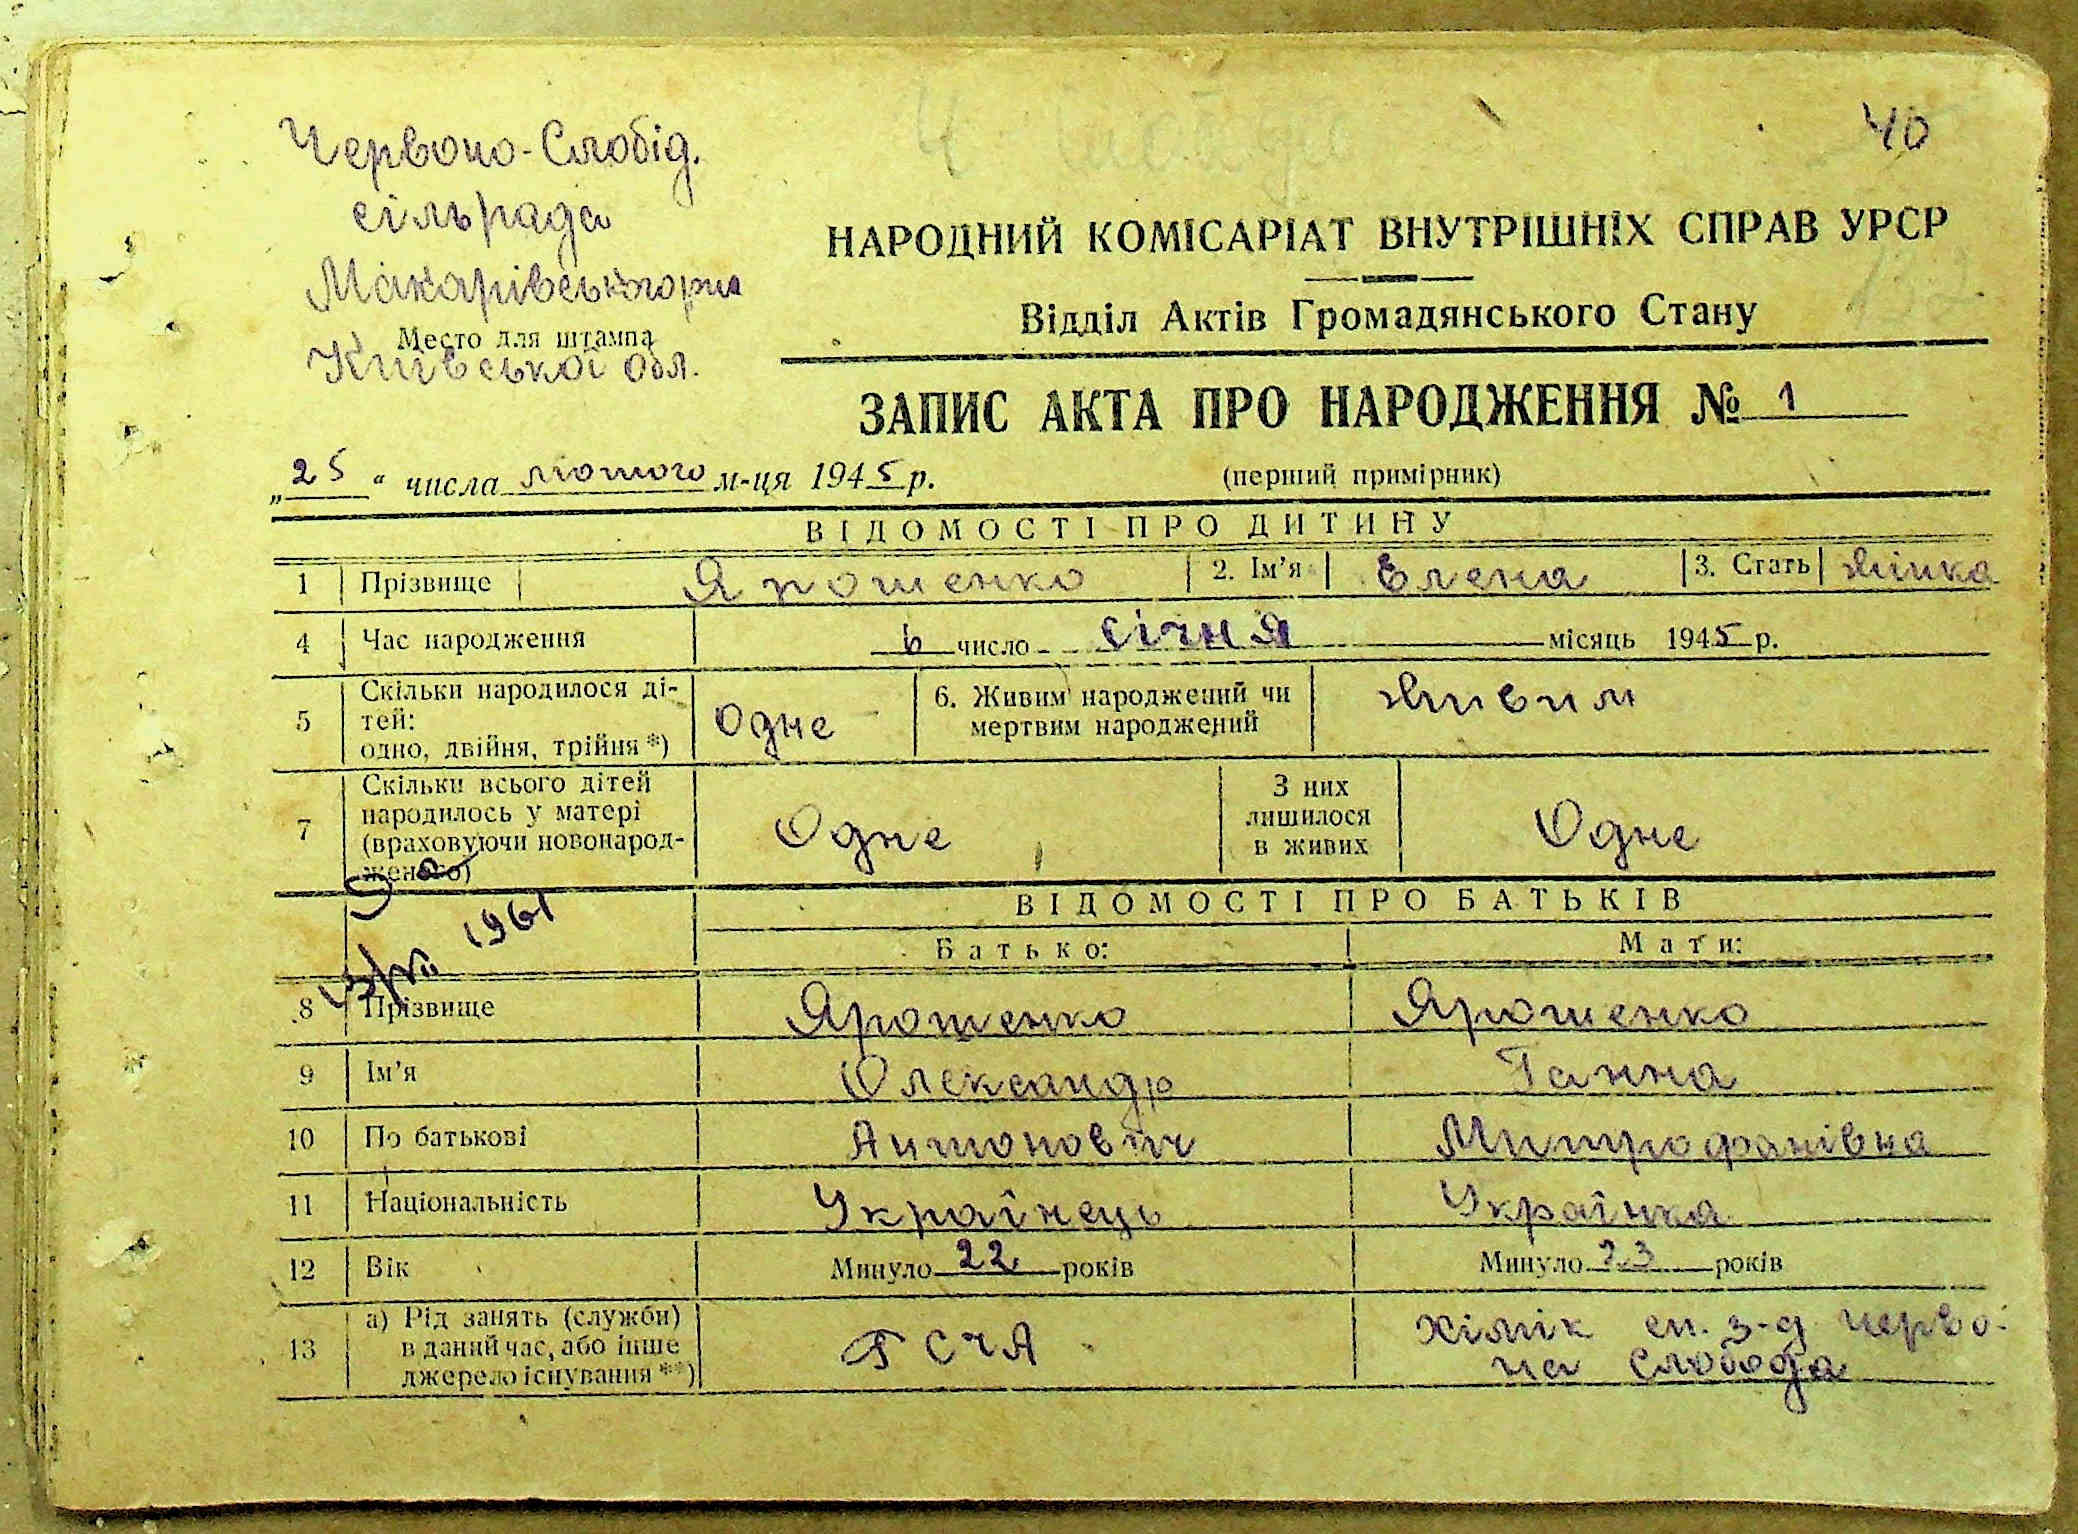 40
Червоно-Слобід.
сільрада
Макарівського р-на
Место для штампа
Київської обл.
НАРОДНИЙ КОМІСАРІАТ ВНУТРІШНІХ СПРАВ УРСР
Відділ Актів Громадянського Стану
ЗАПИС АКТА ПРО НАРОДЖЕННЯ № 1
„25“ числа лютого м-ця 1945 р. (перший примірник)
ВІДОМОСТІ ПРО ДИТИНУ
1 Прізвище Ярошенко 2. Ім'я Елена 3. Стать жінка
4 Час народження 6 число січня місяць 1945 р.
5 Скільки народилося ді-
тей:
одно, двійня, трійня *) Одне 6. Живим народжений чи
мертвим народжений живим
7 Скільки всього дітей
народилось у матері
(враховуючи новонарод-
женого) Одне З них
лишилося
в живих Одне
1961
ВІДОМОСТІ ПРО БАТЬКІВ
Батько: Мати:
8 Прізвище Ярошенко Ярошенко
9 Ім'я Олександр Ганна
10 По батькові Антонович Митрофанівна
11 Національність Українець Українка
12 Вік Минуло 22 років Минуло 23 років
13 а) Рід занять (служби)
в даний час, або інше
джерело існування **) РСЧА хімік сп. з-д черво-
на слобода